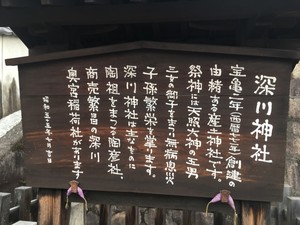 深川神社
宝亀二年(西暦七七一年)創建の
由緒ある産土神社です。
祭神には天照大神の五男
三女の御子をまつり無病息災
子孫繁栄を掌ります。
深川神社は主なものに
陶祖をまつる陶彦社、
商売繁昌の深川
奥宮稲荷社があります